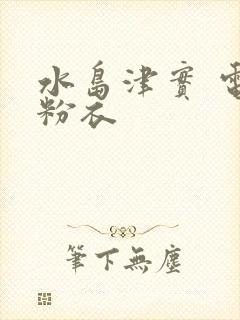 水島津實 電
粉衣
筆下無塵